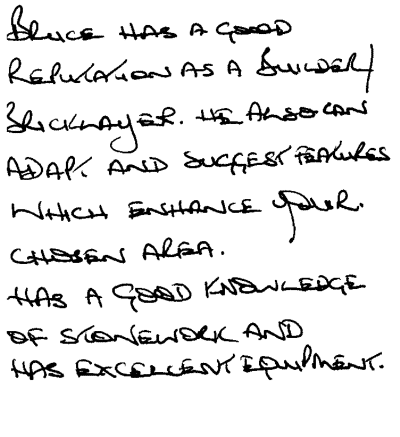 BRUCE HAS A GOOD
REPUTATION AS A BUILDER/
BRICKLAYER. HE ALSO CAN
ADAPT. AND SUGGEST FEATURES
WHICH ENHANCE YOUR.
CHOSEN AREA.
HAS A GOOD KNOWLEDGE
OF STONEWORK AND
HAS EXCELLENT EQUIPMENT.